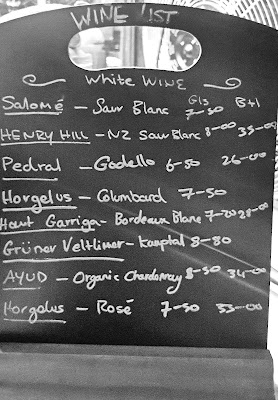 WINE LIST
White WINE
Gls Btl
Salomé - Sauv Blanc 7-50
HENRY HILL - NZ Sauv Blanc 8-00 35-00
Pedral - Godello 6-50 26-00
Horgelus - Colombard 7-50
Haut Garriga - Bordeaux Blanc 7-20 28-00
Grüner Veltliner - 8-80
AYUD - Organic Chardonnay 8-50 34-00
Horgelus - Rosé 7-50 33-00